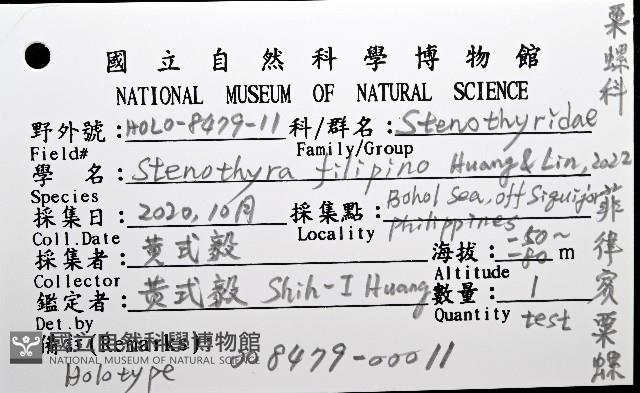 國立自然科學博物館
NATIONAL MUSEUM OF NATURAL SCIENCE
野外號:HOLO-8479-11 科/群名:Stenothyridae
Field# Family/Group
學 名:Stenothyra filipino Huang & Lin, 2022
Species
採集日:2020,10月 採集點:Bohol Sea, off Siquijor
Coll.Date Locality Philippines
採集者:黄式毅 海拔:-50~-80 m
Collector Altitude
鑑定者:黄式毅 Shih-I Huang 數量:1
Det.by Quantity test
備註(Remarks)
國立自然科學博物館
NATIONAL MUSEUM OF NATURAL SCIENCE
Holotype 008479-00011
粟螺科
菲律賓粟螺